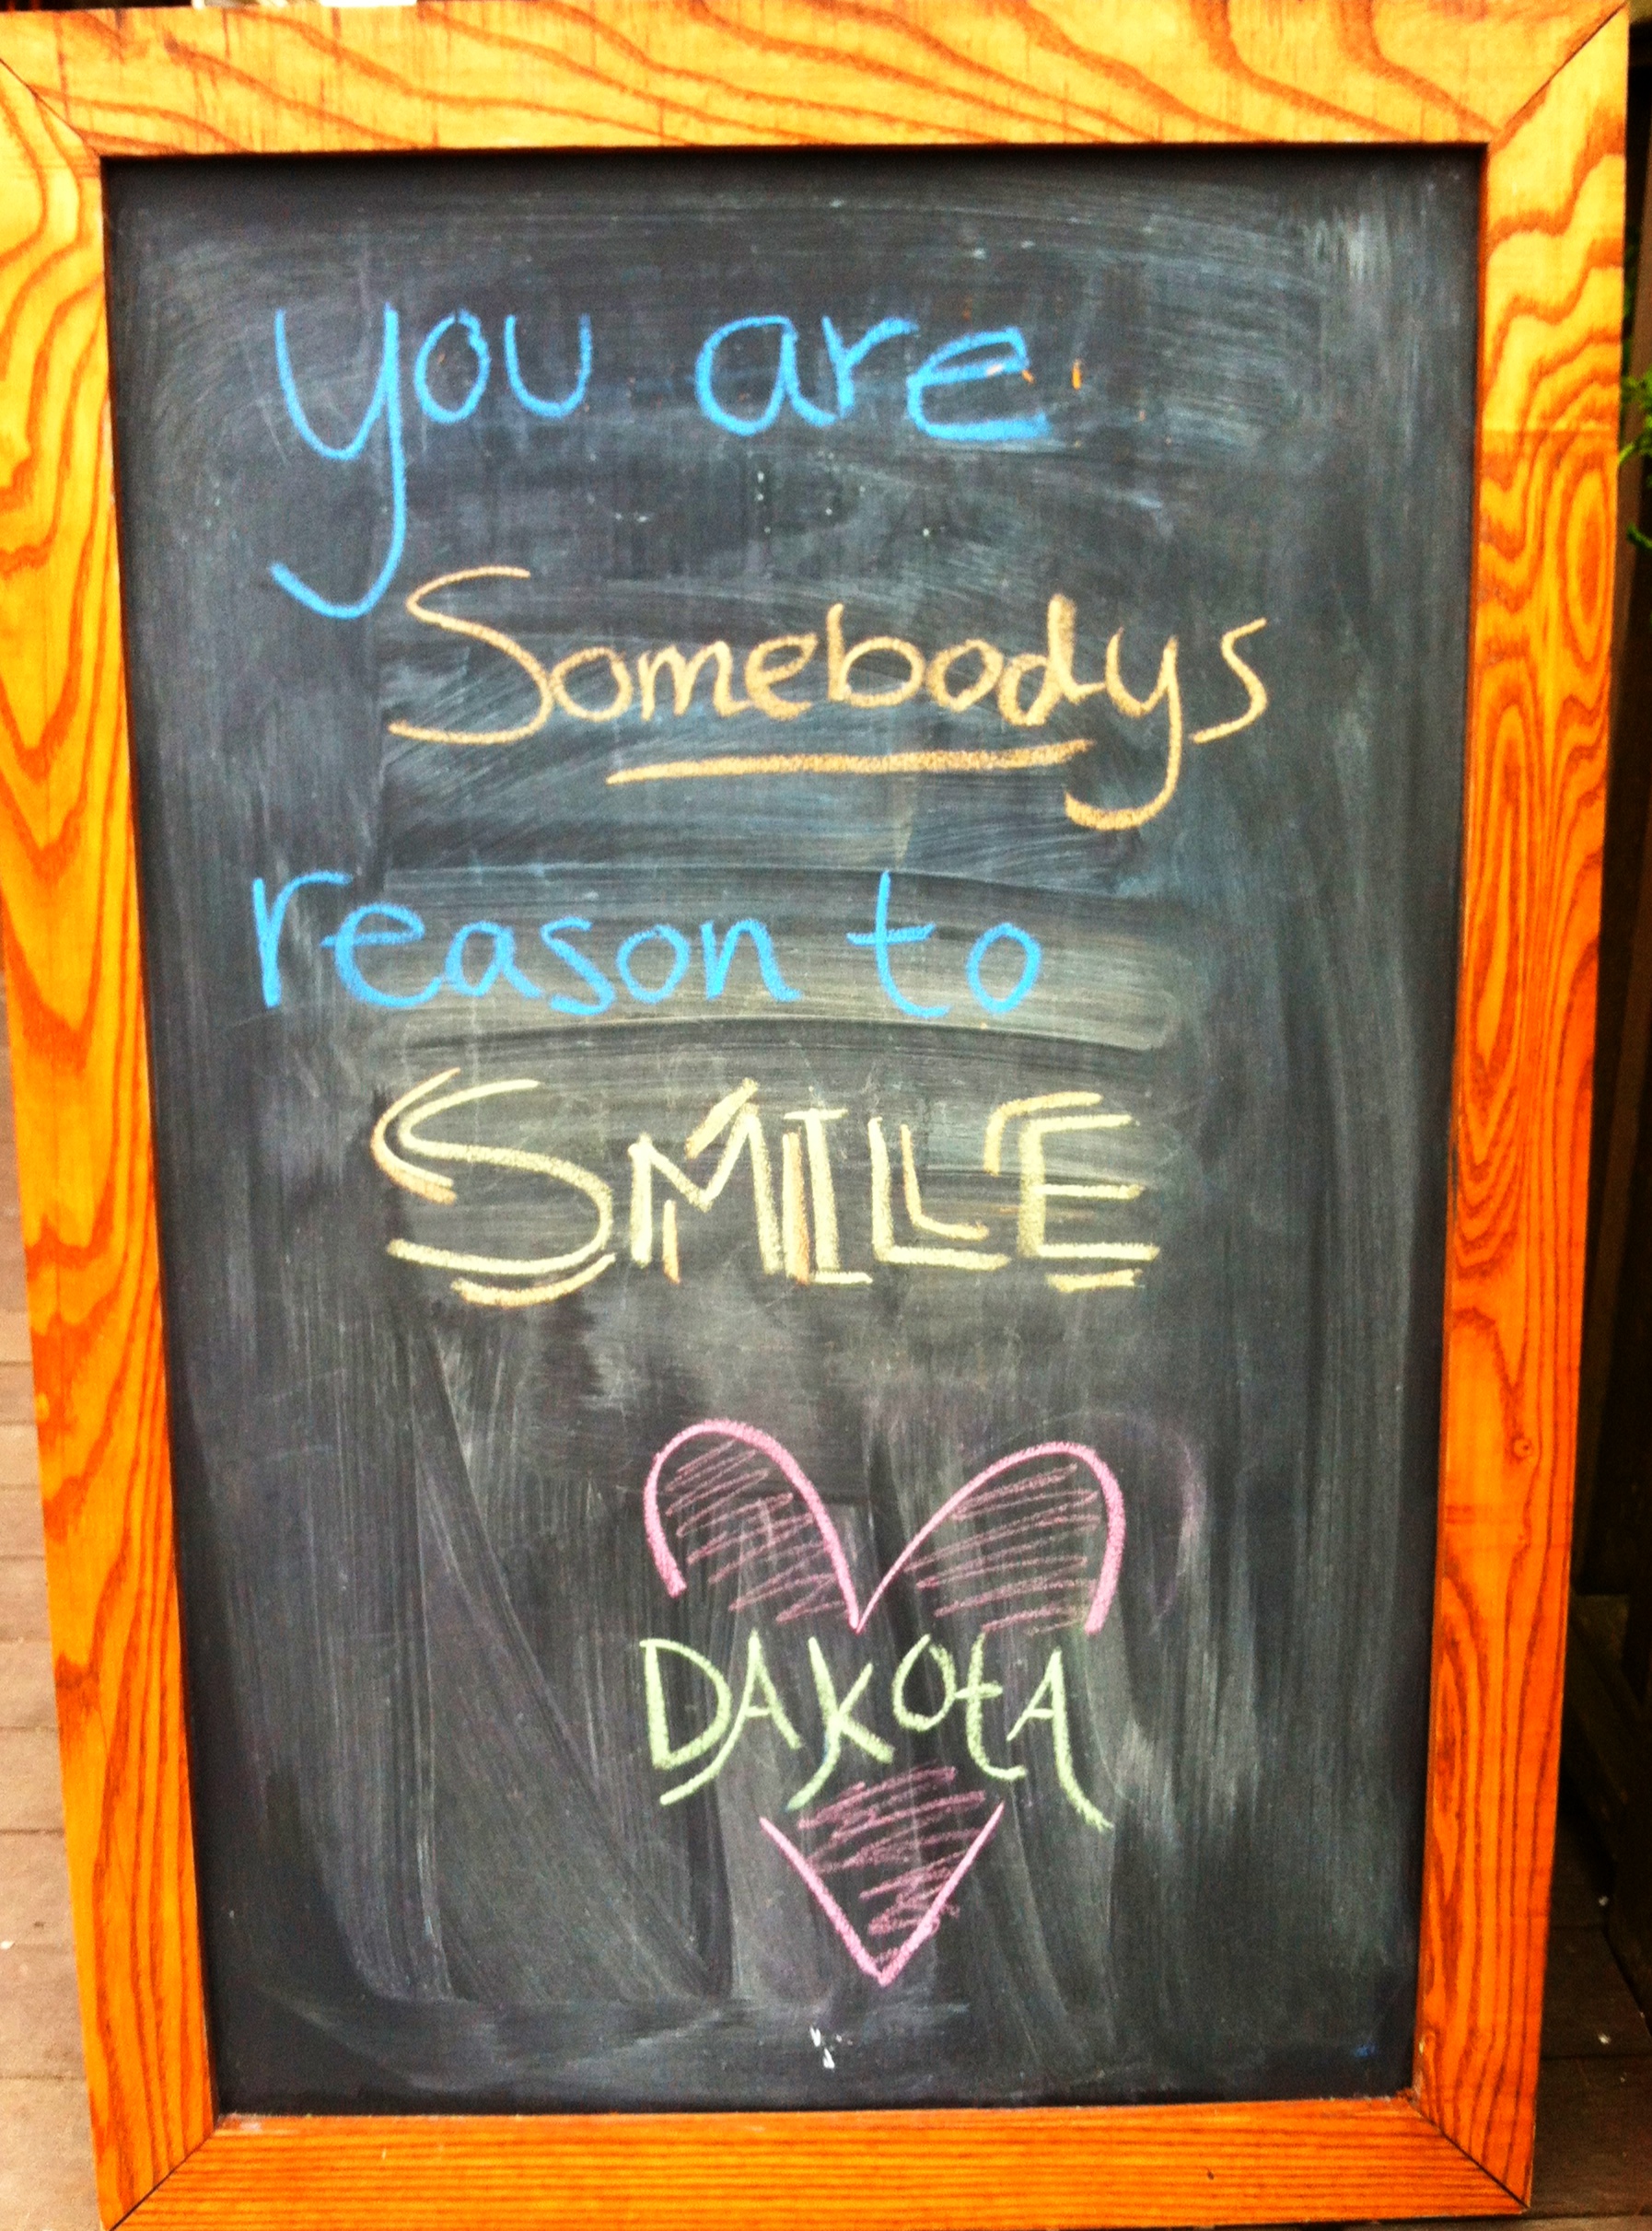 you are
Somebodys
reason to
SMILE
DAKOtA